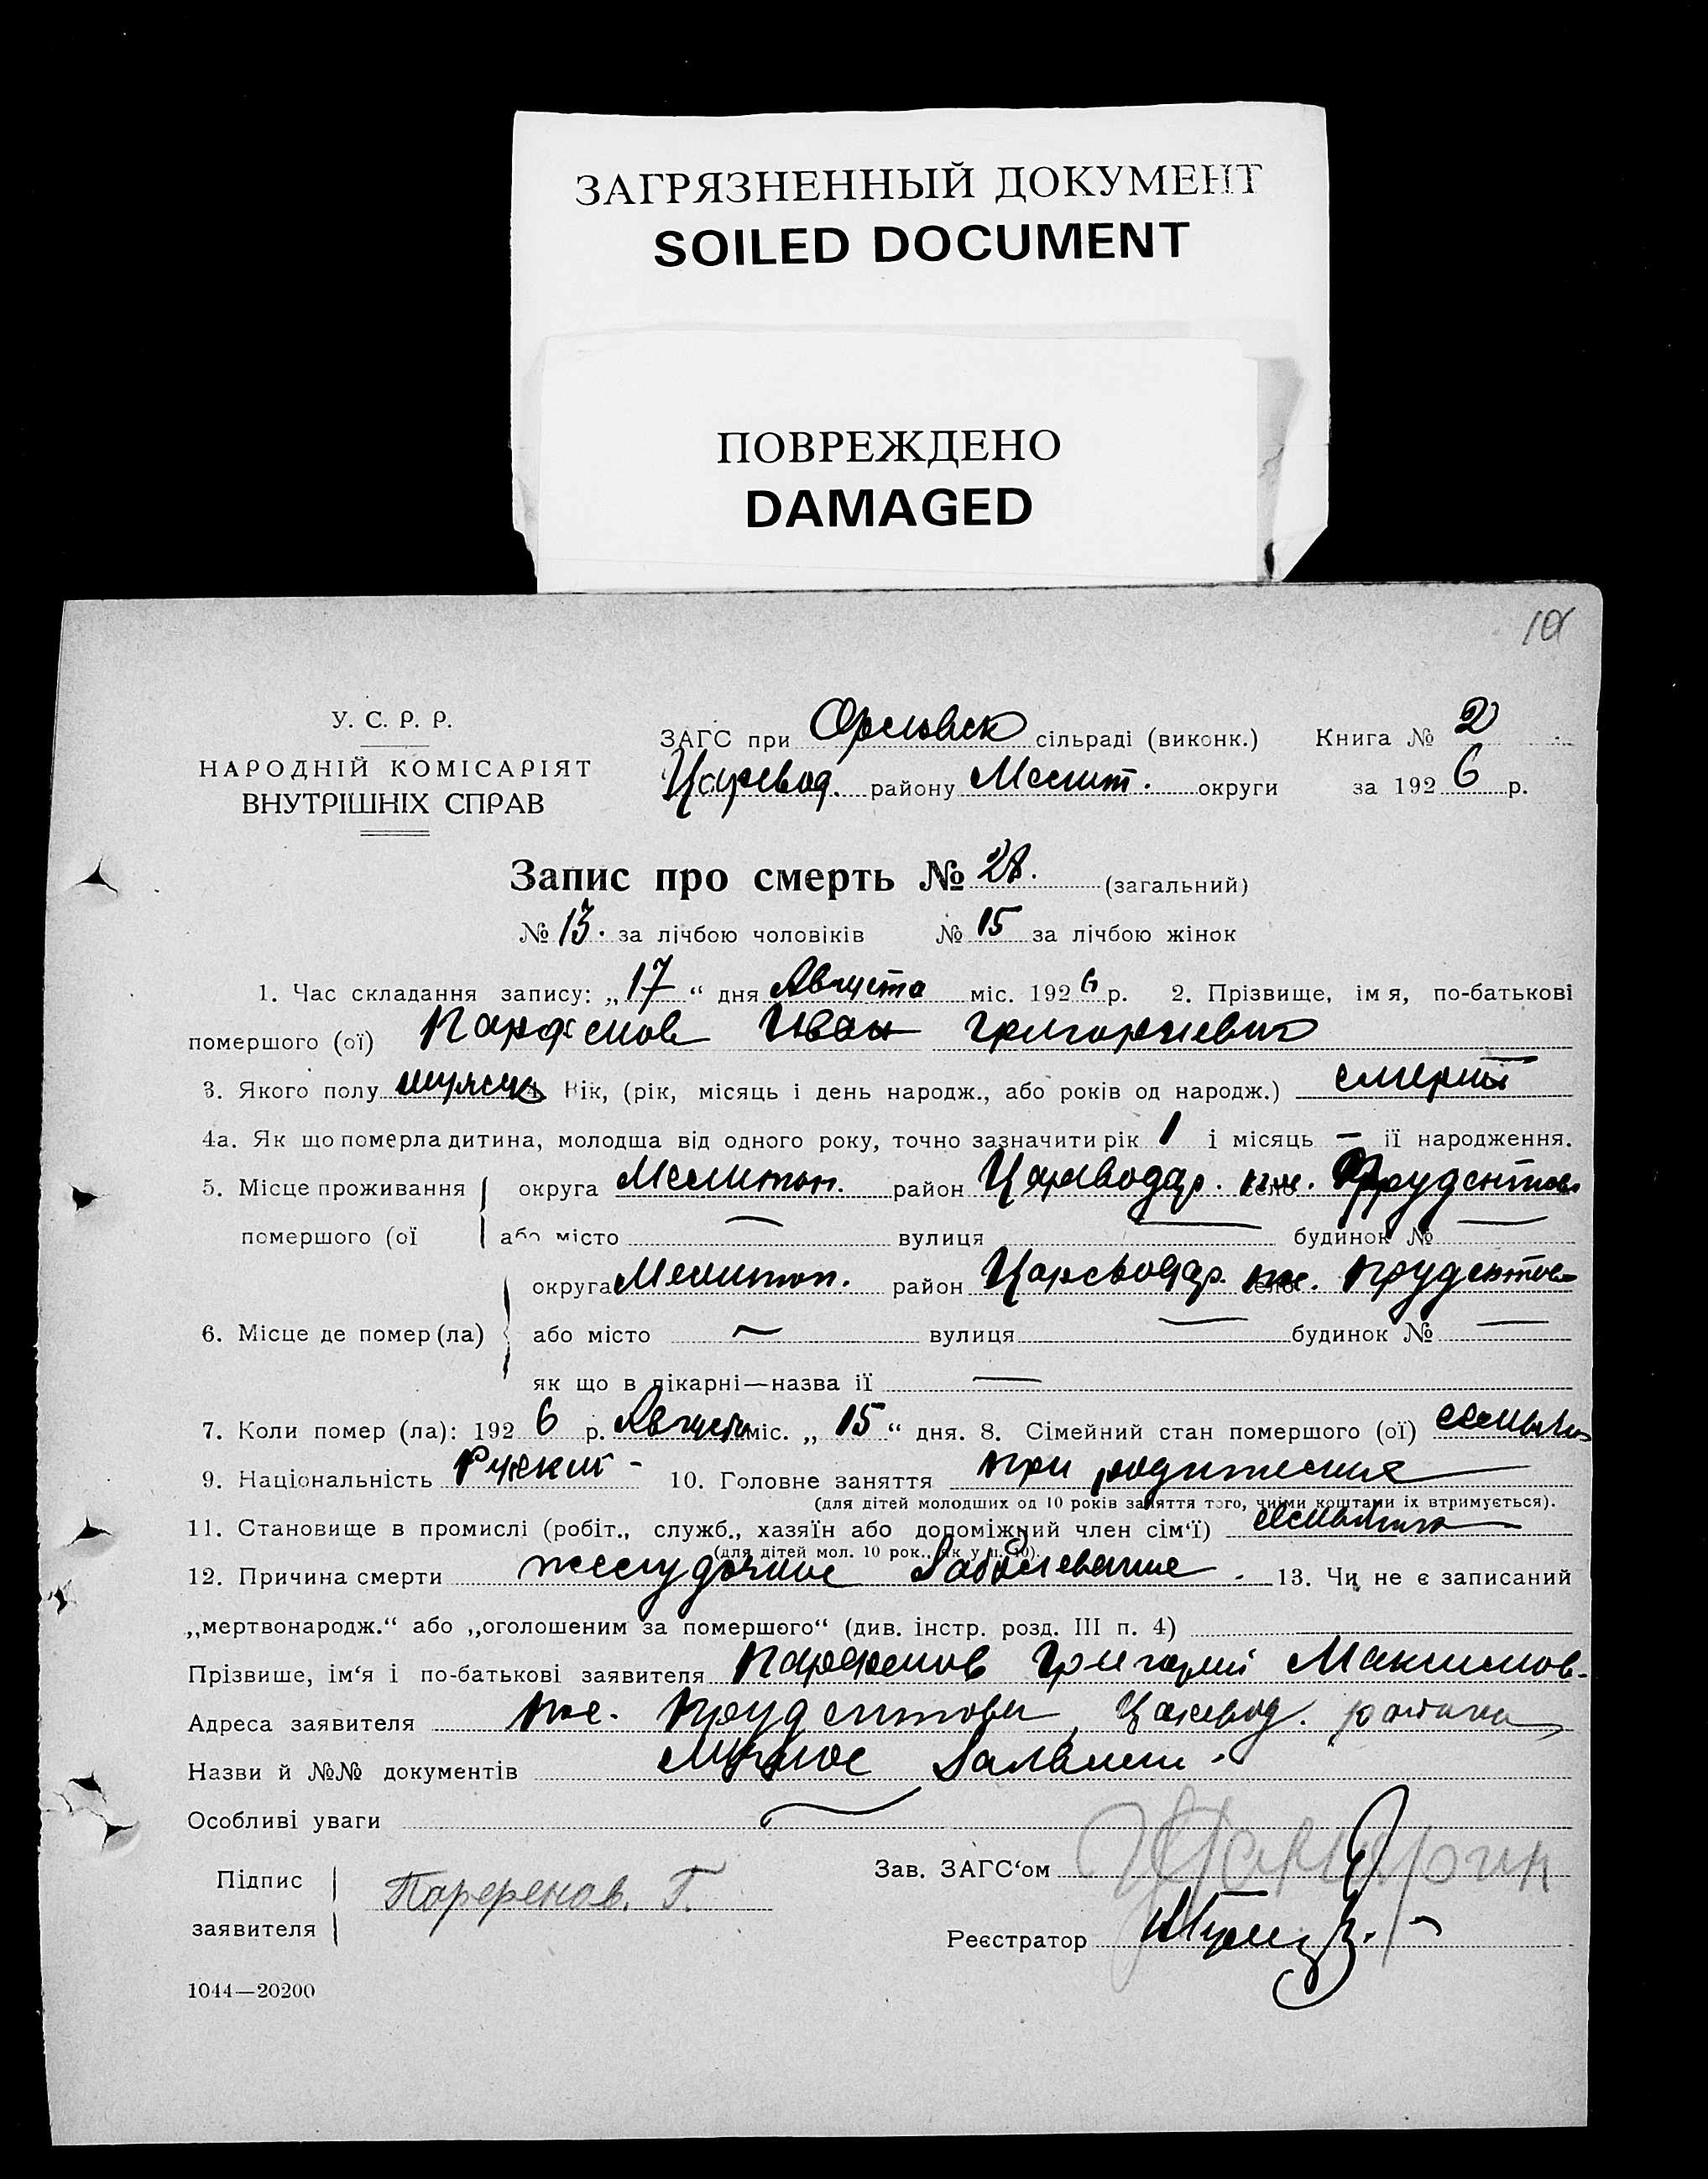 ЗАГРЯЗНЕННЫЙ ДОКУМЕНТ
SOILED DOCUMENT
ПОВРЕЖДЕНО
DAMAGED
У. С. Р. Р.
НАРОДНІЙ КОМІСАРІЯТ
ВНУТРІШНІХ СПРАВ
ЗАГС при Орловск сільраді (виконк.) Книга № 2
Царевод. району Мелит. округи за 1926 р.
Запис про смерть № 28. (загальний)
№ 13. за лічбою чоловіків № 15 за лічбою жінок
1. Час складання запису: „17“ дня Августа міс. 1926 р. 2. Прізвище, імя, по-батькові
помершого (ої) Парфенов Иван Григориевич
3. Якого полу мужск 4. Вік, (рік, місяць і день народж., або років од народж.) смерти
4а. Як що померла дитина, молодша від одного року, точно зазначити рік 1 і місяць — ії народження.
5. Місце проживання округа Мелитоп. район Цареводар. село Прудентово
помершого (ої або місто — вулиця — будинок № —
округа Мелитоп. район Цареводар. село Прудентов
6. Місце де помер (ла) або місто — вулиця — будинок № —
як що в лікарні—назва ії —
7. Коли помер (ла): 1926 р. Августа міс. „15“ дня. 8. Сімейний стан помершого (ої)
9. Національність Руский - 10. Головне заняття при родителях
(для дітей молодших од 10 років заняття того, чиїми коштами їх втримується).
11. Становище в промислі (робіт., служб., хазяїн або допоміжний член сім‘ї)
(для дітей мол. 10 рок., як у п. 10).
12. Причина смерти желудочное Заболевание. 13. Чи не є записаний
„мертвонародж.“ або „оголошеним за помершого“ (див. інстр. розд. III п. 4)
Прізвище, ім‘я і по-батькові заявителя Парфенов Григорий Максимов-
Адреса заявителя Прудентовы, Царевод. района
Назви й №№ документів Личное Заявлен.
Особливі уваги —
Підпис
заявителя
Парфенов. Г.
Зав. ЗАГС‘ом
Реєстратор
1044—20200